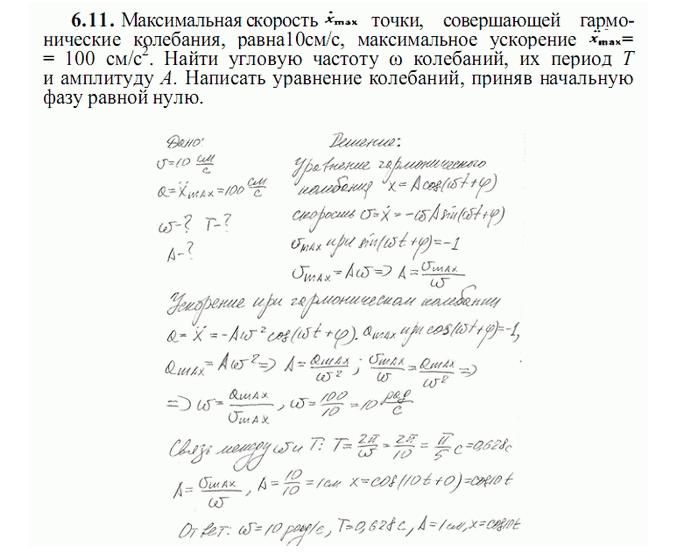 6.11. Максимальная скорость ẋmax точки, совершающей гармо-
нические колебания, равна10см/с, максимальное ускорение ẍmax=
= 100 см/с². Найти угловую частоту ω колебаний, их период T
и амплитуду A. Написать уравнение колебаний, приняв начальную
фазу равной нулю.
Дано: Решение:
υ=10 см/с Уравнение гармонического
a=ẍmax=100 см/с колебания x=Acos(ωt+φ)
ω-? T-? скорость υ=ẋ=-ωAsin(ωt+φ)
A-? υmax при sin(ωt+φ)=-1
υmax=Aω=>A=υmax/ω
Ускорение при гармоническом колебании
a=ẍ=-Aω²cos(ωt+φ). amax при cos(ωt+φ)=-1,
amax=Aω²=> A=amax/ω²; υmax/ω=amax/ω² =>
=> ω=amax/υmax, ω=100/10=10 рад/с
Связь между ω и T: T=2π/ω=2π/10=π/5 с=0,628с
A=υmax/ω, A=10/10=1см x=cos(10t+0)=cos10t
Ответ: ω=10 рад/с, T=0,628с, A=1см, x=cos10t